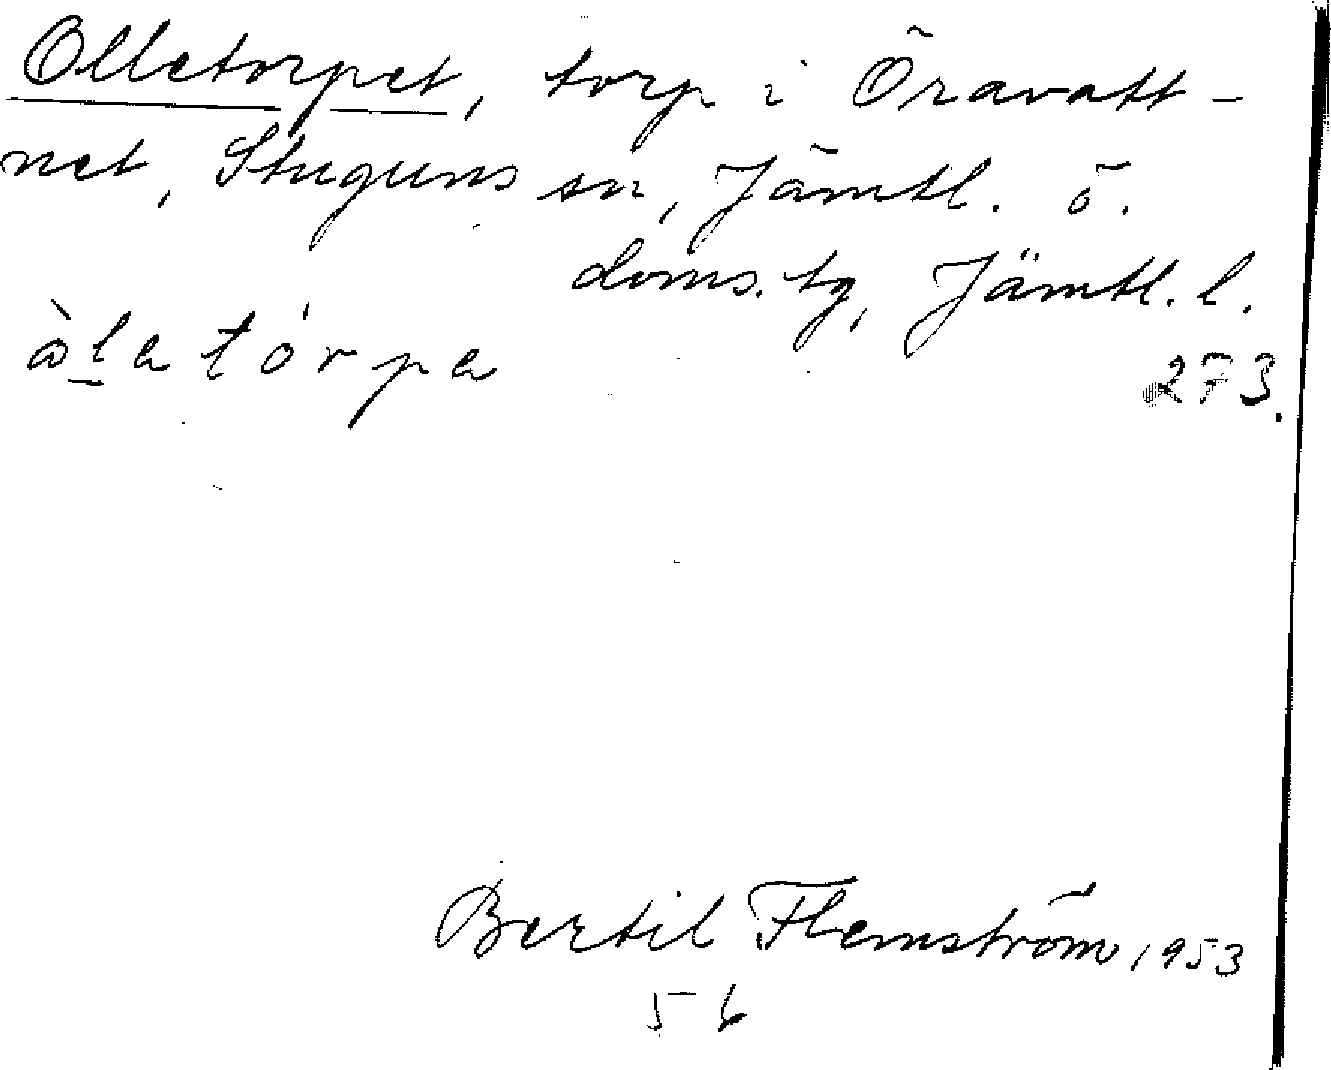 Olletorpet, torp i Öravatt-
net, Stuguns sn, Jämtl. ö.
doms. tg, Jämtl. l.
òl̲a tórpa
273.
Bertil Flemström 1953
56